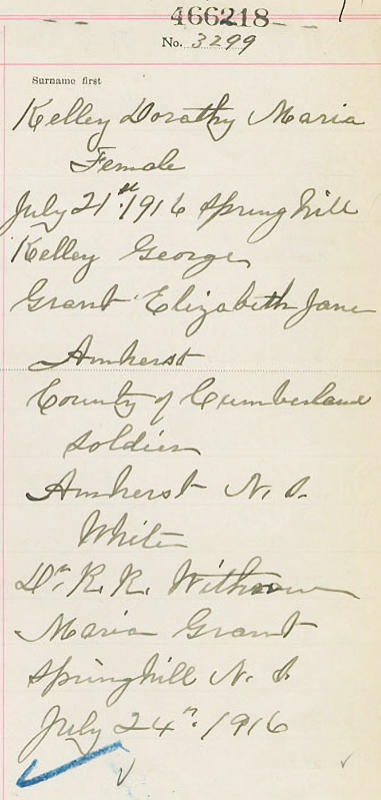 466218
No. 3299
Surname first
Kelley Dorathy Maria
Female
July 21st 1916 Springhill
Kelley George
Grant Elizabeth Jane
Amherst
County of Cumberland
Soldier
Amherst N.S.
White
Dr. R. R. Withrow
Maria Grant
Springhill N.S.
July 24th 1916